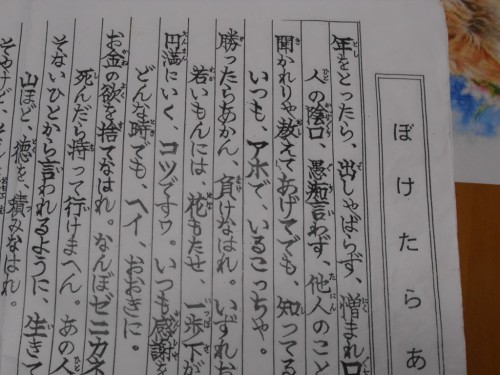 ぼけたらあ
年をとったら、出しゃばらず、憎まれ口
人の陰口、愚痴言わず、他人のこと
聞かれりゃ教えてあげてでも、知ってる
いつも、アホで、いるこっちゃ。
勝ったらあかん、負けなはれ。いずれお
若いもんには、花もたせ、一歩下が
円満にいく、コツですワ。いつも感謝を
どんな時でも、ヘイ、おおきに。
お金の欲を捨てなはれ。なんぼゼニカネ
死んだら持って行けまへん。あの人
そないひとから言われるように、生きて
山ほど、徳を、積みなはれ。
そやけど、